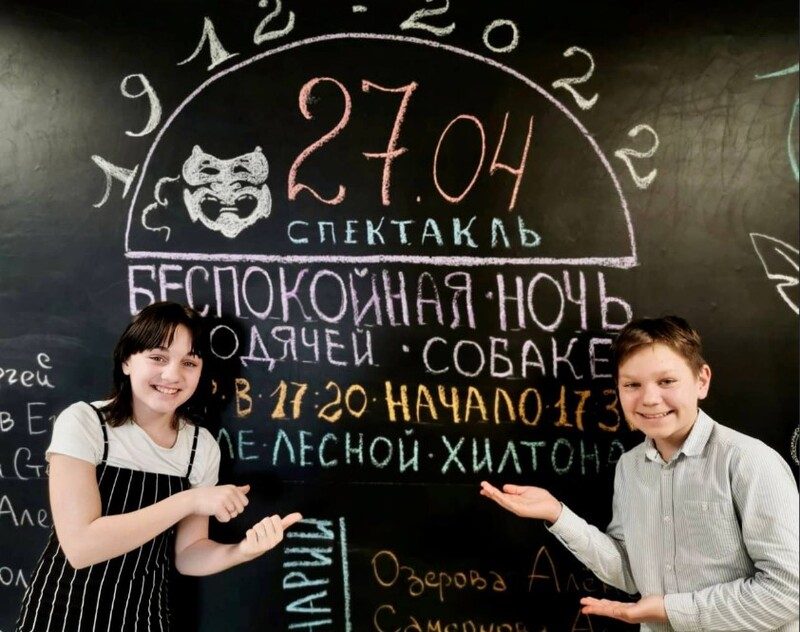 1912-2022
27.04
СПЕКТАКЛЬ
БЕСПОКОЙНАЯ·НОЧЬ
ОДЯЧЕЙ·СОБАКЕ
В·17:20·НАЧАЛО·17 3
ЛЕ·ЛЕСНОЙ·ХИЛТОН
ргей
в Е
Але
НАРИИ
Озерова Ал